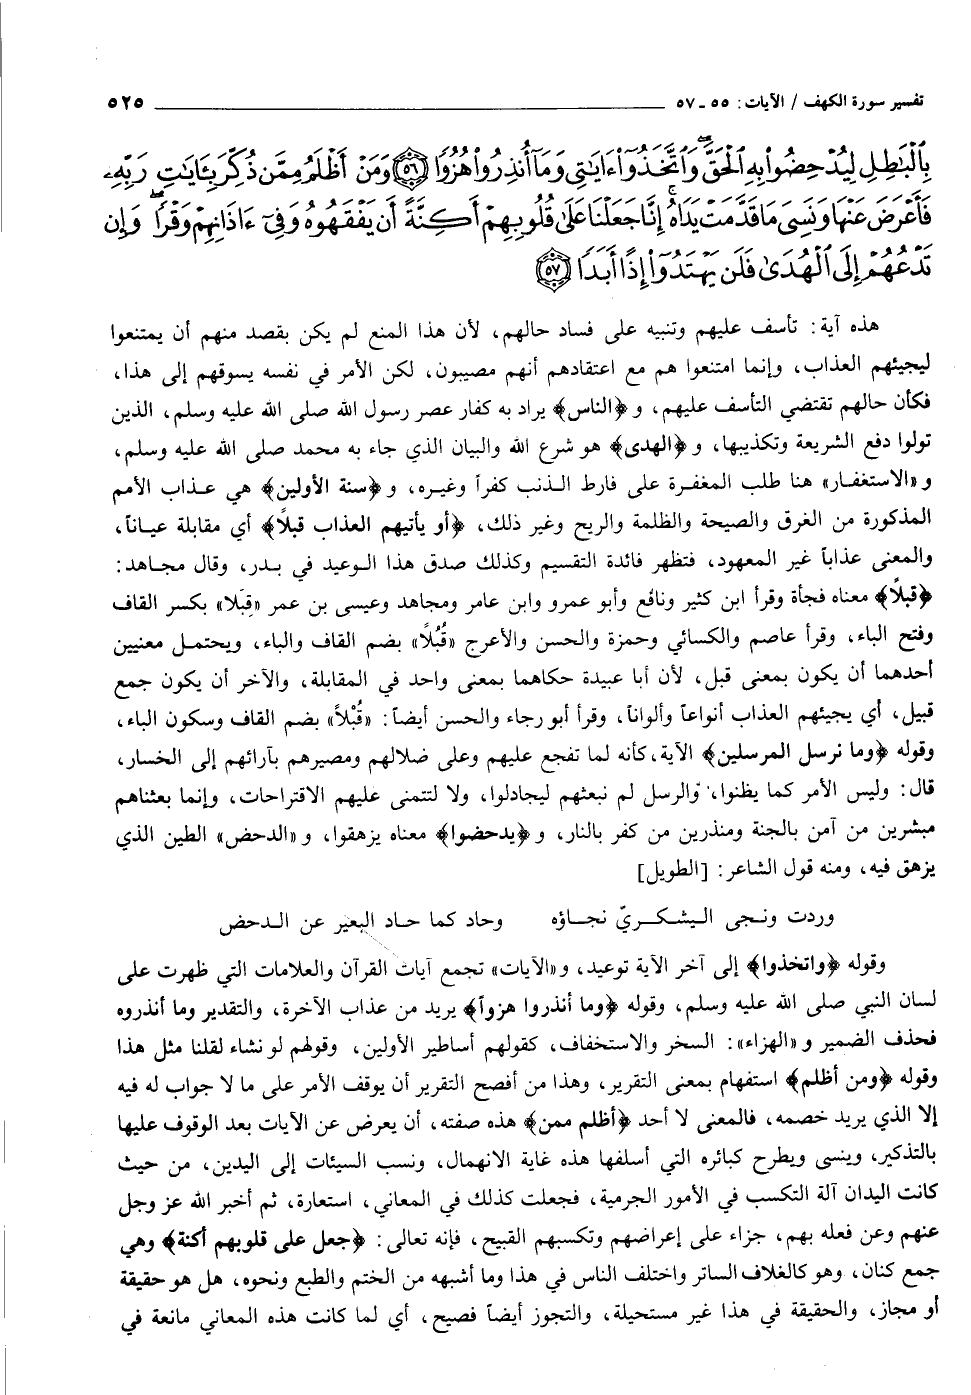 تفسير سورة الكهف / الآيات : ٥٥ ـ ٥٧ ٥٢٥
بِٱلْبَٰطِلِ لِيُدْحِضُوا۟ بِهِ ٱلْحَقَّ ۖ وَٱتَّخَذُوٓا۟ ءَايَٰتِى وَمَآ أُنذِرُوا۟ هُزُوًا ﴿٥٦﴾ وَمَنْ أَظْلَمُ مِمَّن ذُكِّرَ بِـَٔايَٰتِ رَبِّهِۦ
فَأَعْرَضَ عَنْهَا وَنَسِىَ مَا قَدَّمَتْ يَدَاهُ ۚ إِنَّا جَعَلْنَا عَلَىٰ قُلُوبِهِمْ أَكِنَّةً أَن يَفْقَهُوهُ وَفِىٓ ءَاذَانِهِمْ وَقْرًا ۖ وَإِن
تَدْعُهُمْ إِلَى ٱلْهُدَىٰ فَلَن يَهْتَدُوٓا۟ إِذًا أَبَدًا ﴿٥٧﴾
هذه آية : تأسف عليهم وتنبيه على فساد حالهم، لأن هذا المنع لم يكن بقصد منهم أن يمتنعوا
ليجيئهم العذاب، وإنما امتنعوا هم مع اعتقادهم أنهم مصيبون، لكن الأمر في نفسه يسوقهم إلى هذا،
فكأن حالهم تقتضي التأسف عليهم، و ﴿الناس﴾ يراد به كفار عصر رسول الله صلى الله عليه وسلم، الذين
تولوا دفع الشريعة وتكذيبها، و ﴿الهدى﴾ هو شرع الله والبيان الذي جاء به محمد صلى الله عليه وسلم،
و «الاستغفار» هنا طلب المغفرة على فارط الذنب كفراً وغيره، و ﴿سنة الأولين﴾ هي عذاب الأمم
المذكورة من الغرق والصيحة والظلمة والريح وغير ذلك، ﴿أو يأتيهم العذاب قبلًا﴾ أي مقابلة عياناً،
والمعنى عذاباً غير المعهود، فتظهر فائدة التقسيم وكذلك صدق هذا الوعيد في بدر، وقال مجاهد :
﴿قبلًا﴾ معناه فجأة وقرأ ابن كثير ونافع وأبو عمرو وابن عامر ومجاهد وعيسى بن عمر «قِبَلا» بكسر القاف
وفتح الباء، وقرأ عاصم والكسائي وحمزة والحسن والأعرج «قُبُلًا» بضم القاف والباء، ويحتمل معنيين
أحدهما أن يكون بمعنى قبل، لأن أبا عبيدة حكاهما بمعنى واحد في المقابلة، والآخر أن يكون جمع
قبيل، أي يجيئهم العذاب أنواعاً وألواناً، وقرأ أبو رجاء والحسن أيضاً : «قُبْلاً» بضم القاف وسكون الباء،
وقوله ﴿وما نرسل المرسلين﴾ الآية، كأنه لما تفجع عليهم وعلى ضلالهم ومصيرهم بآرائهم إلى الخسار،
قال : وليس الأمر كما يظنوا، والرسل لم نبعثهم ليجادلوا، ولا لتتمنى عليهم الاقتراحات، وإنما بعثناهم
مبشرين من آمن بالجنة ومنذرين من كفر بالنار، و ﴿يدحضوا﴾ معناه يزهقوا، و «الدحض» الطين الذي
يزهق فيه، ومنه قول الشاعر : [الطويل]
وردت ونجى اليشكريّ نجاؤه وحاد كما حاد البعير عن الدحض
وقوله ﴿واتخذوا﴾ إلى آخر الآية توعيد، و «الآيات» تجمع آيات القرآن والعلامات التي ظهرت على
لسان النبي صلى الله عليه وسلم، وقوله ﴿وما أنذروا هزواً﴾ يريد من عذاب الآخرة، والتقدير وما أنذروه
فحذف الضمير و «الهزاء» : السخر والاستخفاف، كقولهم أساطير الأولين، وقولهم لو نشاء لقلنا مثل هذا
وقوله ﴿ومن أظلم﴾ استفهام بمعنى التقرير، وهذا من أفصح التقرير أن يوقف الأمر على ما لا جواب له فيه
إلا الذي يريد خصمه، فالمعنى لا أحد ﴿أظلم ممن﴾ هذه صفته، أن يعرض عن الآيات بعد الوقوف عليها
بالتذكير، وينسى ويطرح كبائره التي أسلفها هذه غاية الانهمال، ونسب السيئات إلى اليدين، من حيث
كانت اليدان آلة التكسب في الأمور الجرمية، فجعلت كذلك في المعاني، استعارة، ثم أخبر الله عز وجل
عنهم وعن فعله بهم، جزاء على إعراضهم وتكسبهم القبيح، فإنه تعالى : ﴿جعل على قلوبهم أكنة﴾ وهي
جمع كنان، وهو كالغلاف الساتر واختلف الناس في هذا وما أشبهه من الختم والطبع ونحوه، هل هو حقيقة
أو مجاز، والحقيقة في هذا غير مستحيلة، والتجوز أيضاً فصيح، أي لما كانت هذه المعاني مانعة في